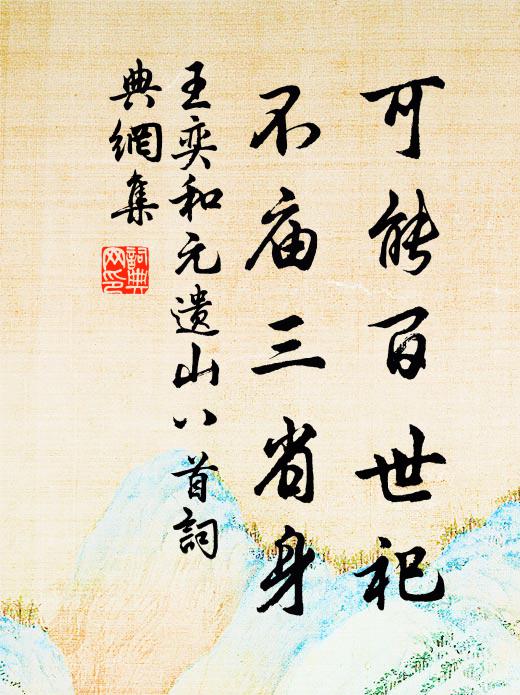 可能百世祀
不庙三省身
王奕和元遗山八首詞
典網集
詞典
网印